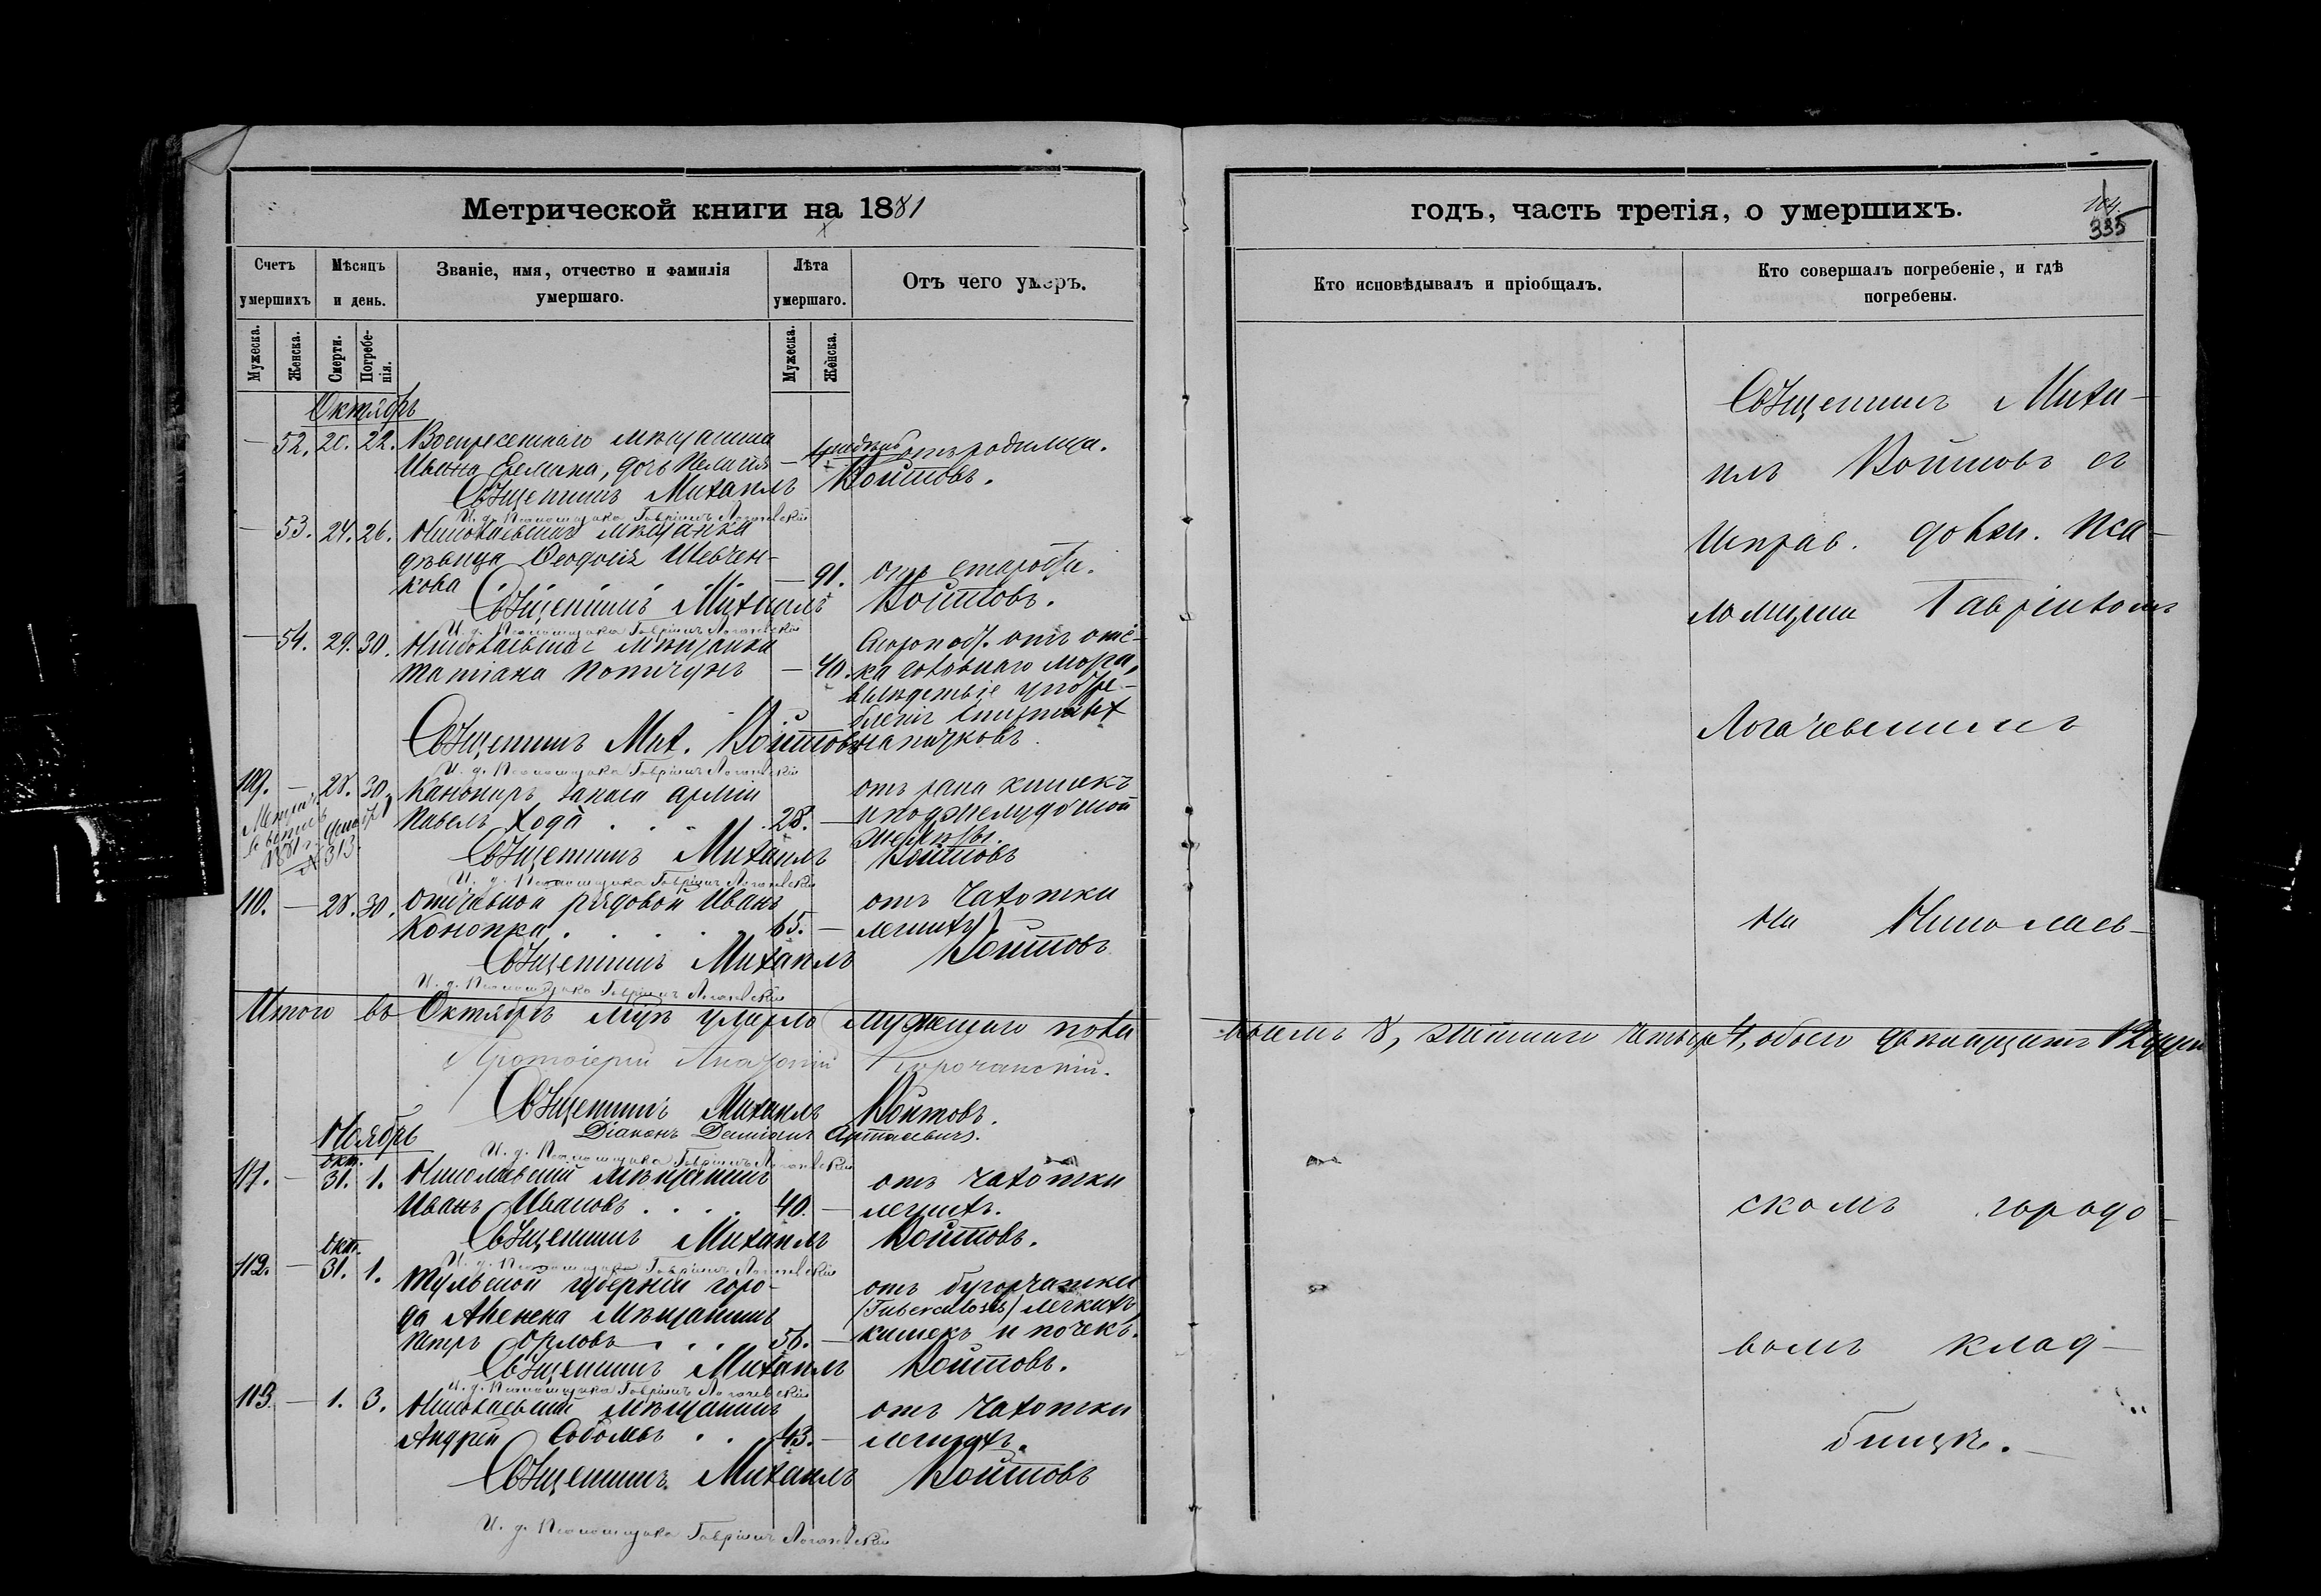 Метрической книги на 1881
Счетъ умершихъ
Мѣсяцъ и день.
Званіе, имя, отчество и фамилія умершаго.
Лѣта умершаго.
Отъ чего умеръ.
Мужеска.
Женска.
Смерти.
Погребенія.
Мужеска.
Женска.
Октябрь
— 52. 20. 22. Воскресенскаго мѣщанина
Ивана Еремина, дочь Пелагія — отъ родимца.
Священникъ Михаилъ Войтовъ.
И. д. Псаломщика Гавріилъ Логачевскій
— 53. 24. 26. Николаевская мѣщанка
дѣвица Феодосія Шевчен-
кова — 91. отъ старости.
Священникъ Михаилъ Войтовъ.
И. д. Псаломщика Гавріилъ Логачевскій
— 54. 29. 30. Николаевская мѣщанка
Татіана — 40. Скоропост. отъ оте-
ка головнаго мозга,
вслѣдствіе употре-
бленія спиртныхъ
напитковъ.
Священникъ Мих. Войтовъ
И. д. Псаломщика Гавріилъ Логачевскій
109. — 28. 30. Канониръ запаса арміи
Павелъ Хода . . . 28. — отъ рака кишекъ
и поджелудочной
железы.
1881 г. № 313.
Священникъ Михаилъ Войтовъ
И. д. Псаломщика Гавріилъ Логачевскій
110. — 28. 30. Отставной рядовой Иванъ
Конопка . . . . 65. — отъ чахотки
легкихъ.
Священникъ Михаилъ Войтовъ
И. д. Псаломщика Гавріилъ Логачевскій
Итого въ Октябрѣ м-цѣ умерло мужескаго пола
Протоіерей
Священникъ Михаилъ Войтовъ.
Діаконъ Даміанъ
И. д. Псаломщика Гавріилъ Логачевскій
Ноябрь
окт.
111. — 31. 1. Николаевскій мѣщанинъ
Иванъ Ивановъ . . . . 40. — отъ чахотки
легкихъ.
Священникъ Михаилъ Войтовъ.
И. д. Псаломщика Гавріилъ Логачевскій
окт.
112. — 31. 1. Тульской губерніи горо-
да мѣщанинъ
Петръ Орловъ . . . 56. — отъ бугорчатки
(Tuberculosis) легкихъ,
кишекъ и почекъ.
Священникъ Михаилъ Войтовъ.
И. д. Псаломщика Гавріилъ Логачевскій
113. — 1. 3. Николаевскій мѣщанинъ
Андрей . . 43. — отъ чахотки
легкихъ.
Священникъ Михаилъ Войтовъ
И. д. Псаломщика Гавріилъ Логачевскій
годъ, часть третія, о умершихъ.
104.
335
Кто исповѣдывалъ и пріобщалъ.
Кто совершалъ погребеніе, и гдѣ погребены.
Священникъ Миха-
илъ Войтовъ съ
Исправ. должн. Пса-
ломщика Гавріиломъ
Логачевскимъ
на Николаев-
восемь 8, женскаго четыре 4, обоего двѣнадцать 12 душъ
скомъ городо-
вомъ клад-
бищѣ.